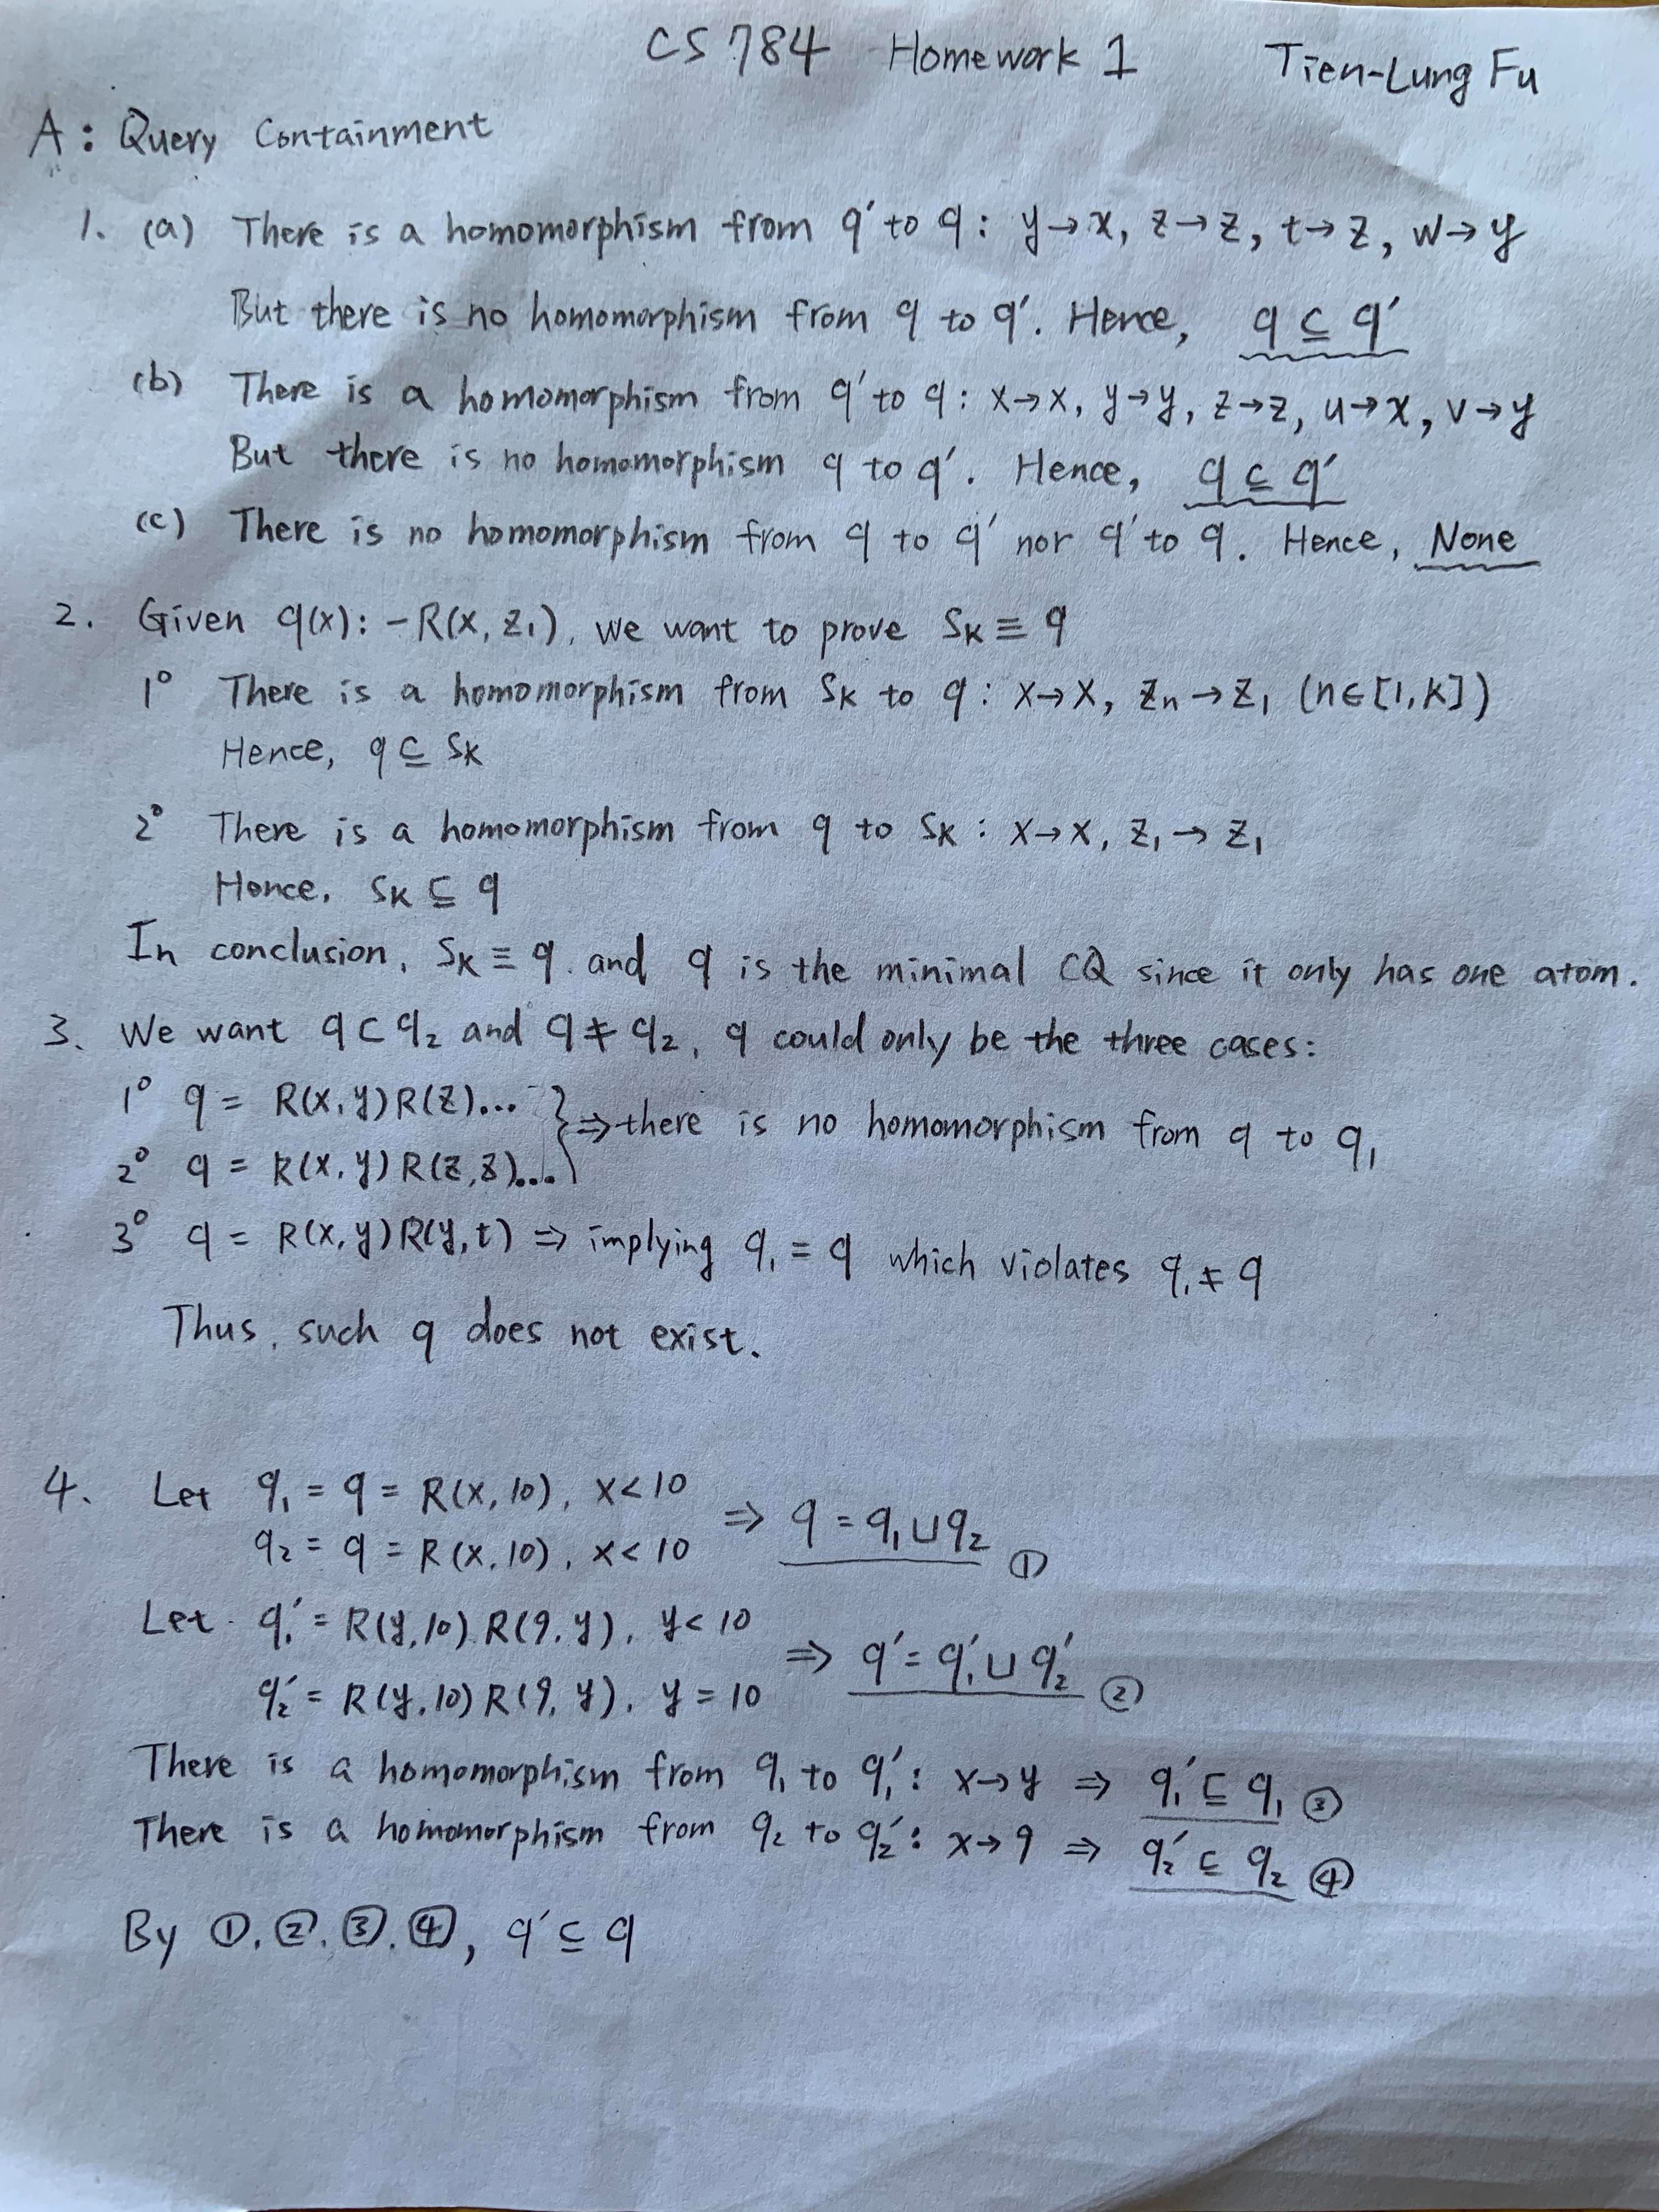 CS 784 Homework 1 Tien-Lung Fu
A: Query Containment
1. (a) There is a homomorphism from q' to q: y→x, z→z, t→z, w→y
But there is no homomorphism from q to q'. Hence, q ⊆ q'
(b) There is a homomorphism from q' to q: x→x, y→y, z→z, u→x, v→y
But there is no homomorphism q to q'. Hence, q ⊆ q'
(c) There is no homomorphism from q to q' nor q' to q. Hence, None
2. Given q(x):-R(x, z₁), we want to prove Sₖ ≡ q
1° There is a homomorphism from Sₖ to q: x→x, zₙ→z₁ (n∈[1,k])
Hence, q ⊆ Sₖ
2° There is a homomorphism from q to Sₖ: x→x, z₁→z₁
Hence, Sₖ ⊆ q
In conclusion, Sₖ ≡ q. and q is the minimal CQ since it only has one atom.
3. We want q ⊂ q₂ and q ≠ q₂, q could only be the three cases:
1° q = R(x,y)R(z)...
2° q = R(x,y)R(z,z)... } ⇒ there is no homomorphism from q to q₁
3° q = R(x,y)R(y,t) ⇒ implying q₁ = q which violates q₁ ≠ q
Thus, such q does not exist.
4. Let q₁ = q = R(x,10), x<10
q₂ = q = R(x,10), x<10 ⇒ q = q₁∪q₂ ①
Let q₁' = R(y,10) R(9,y), y<10
q₂' = R(y,10) R(9,y), y=10 ⇒ q' = q₁'∪q₂' ②
There is a homomorphism from q₁ to q₁': x→y ⇒ q₁' ⊆ q₁ ③
There is a homomorphism from q₂ to q₂': x→9 ⇒ q₂' ⊆ q₂ ④
By ①.②.③.④, q' ⊆ q